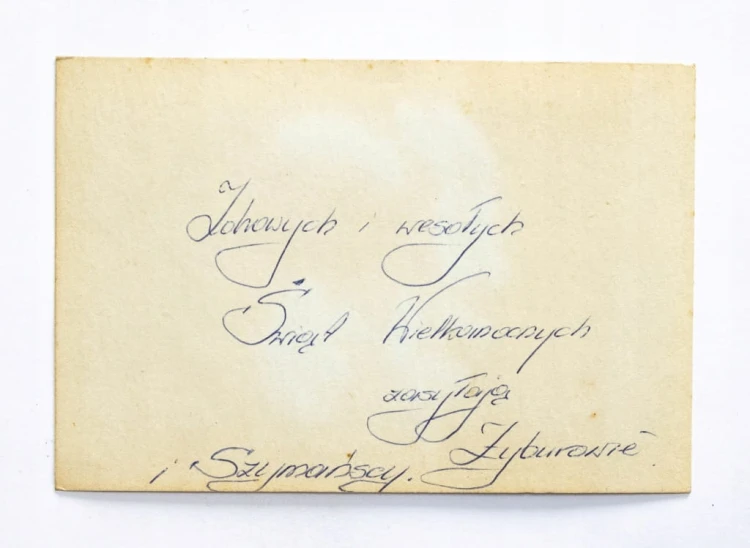 Zdrowych i wesołych
Świąt Wielkanocnych
zasyłają
Żyburowie
i Szymańscy.